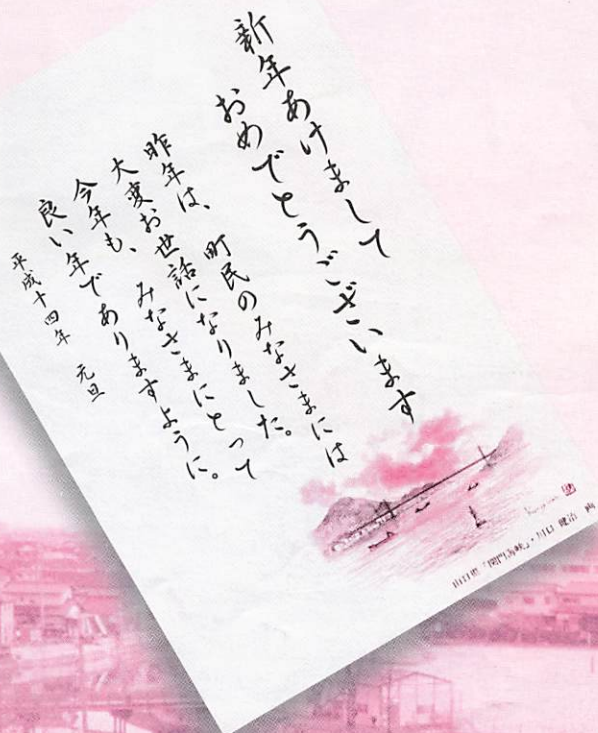 新年あけまして
おめでとうございます
昨年は、町民のみなさまには
大変お世話になりました。
今年も、みなさまにとって
良い年でありますように。
平成十四年 元旦
山口県「関門海峡」・川口 健治 画